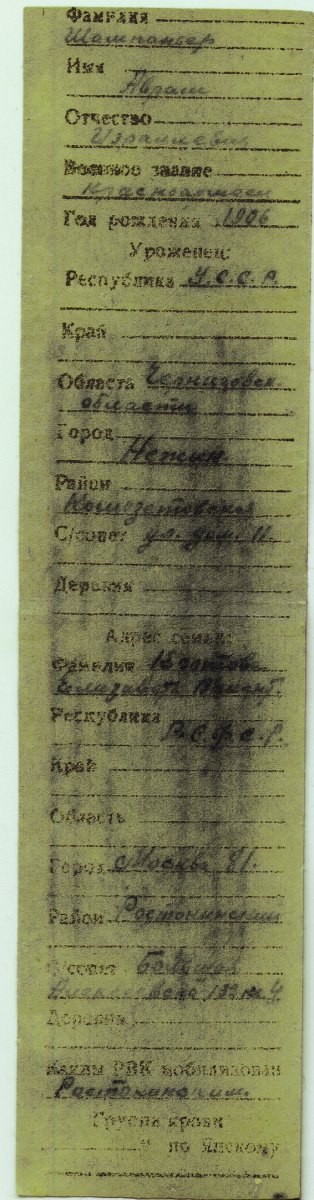 Фамилия
Шампаньер
Имя
Абрам
Отчество
Израилевич
Военное звание
красноармеец
Год рождения 1906
Уроженец:
Республика У.С.С.Р.
Край
Область Черниговск.
области
Город
Нежин.
Район
С/совет ул. дом. 11.
Деревня
Адрес семьи:
Фамилия
Елизавета
Республика
Р.С.Ф.С.Р.
Край
Область
Город Москва
Район Ростокинский
С/совет
Алексеевская
Деревня
Каким РВК мобилизован
Ростокинским.
Группа крови
по Янскому